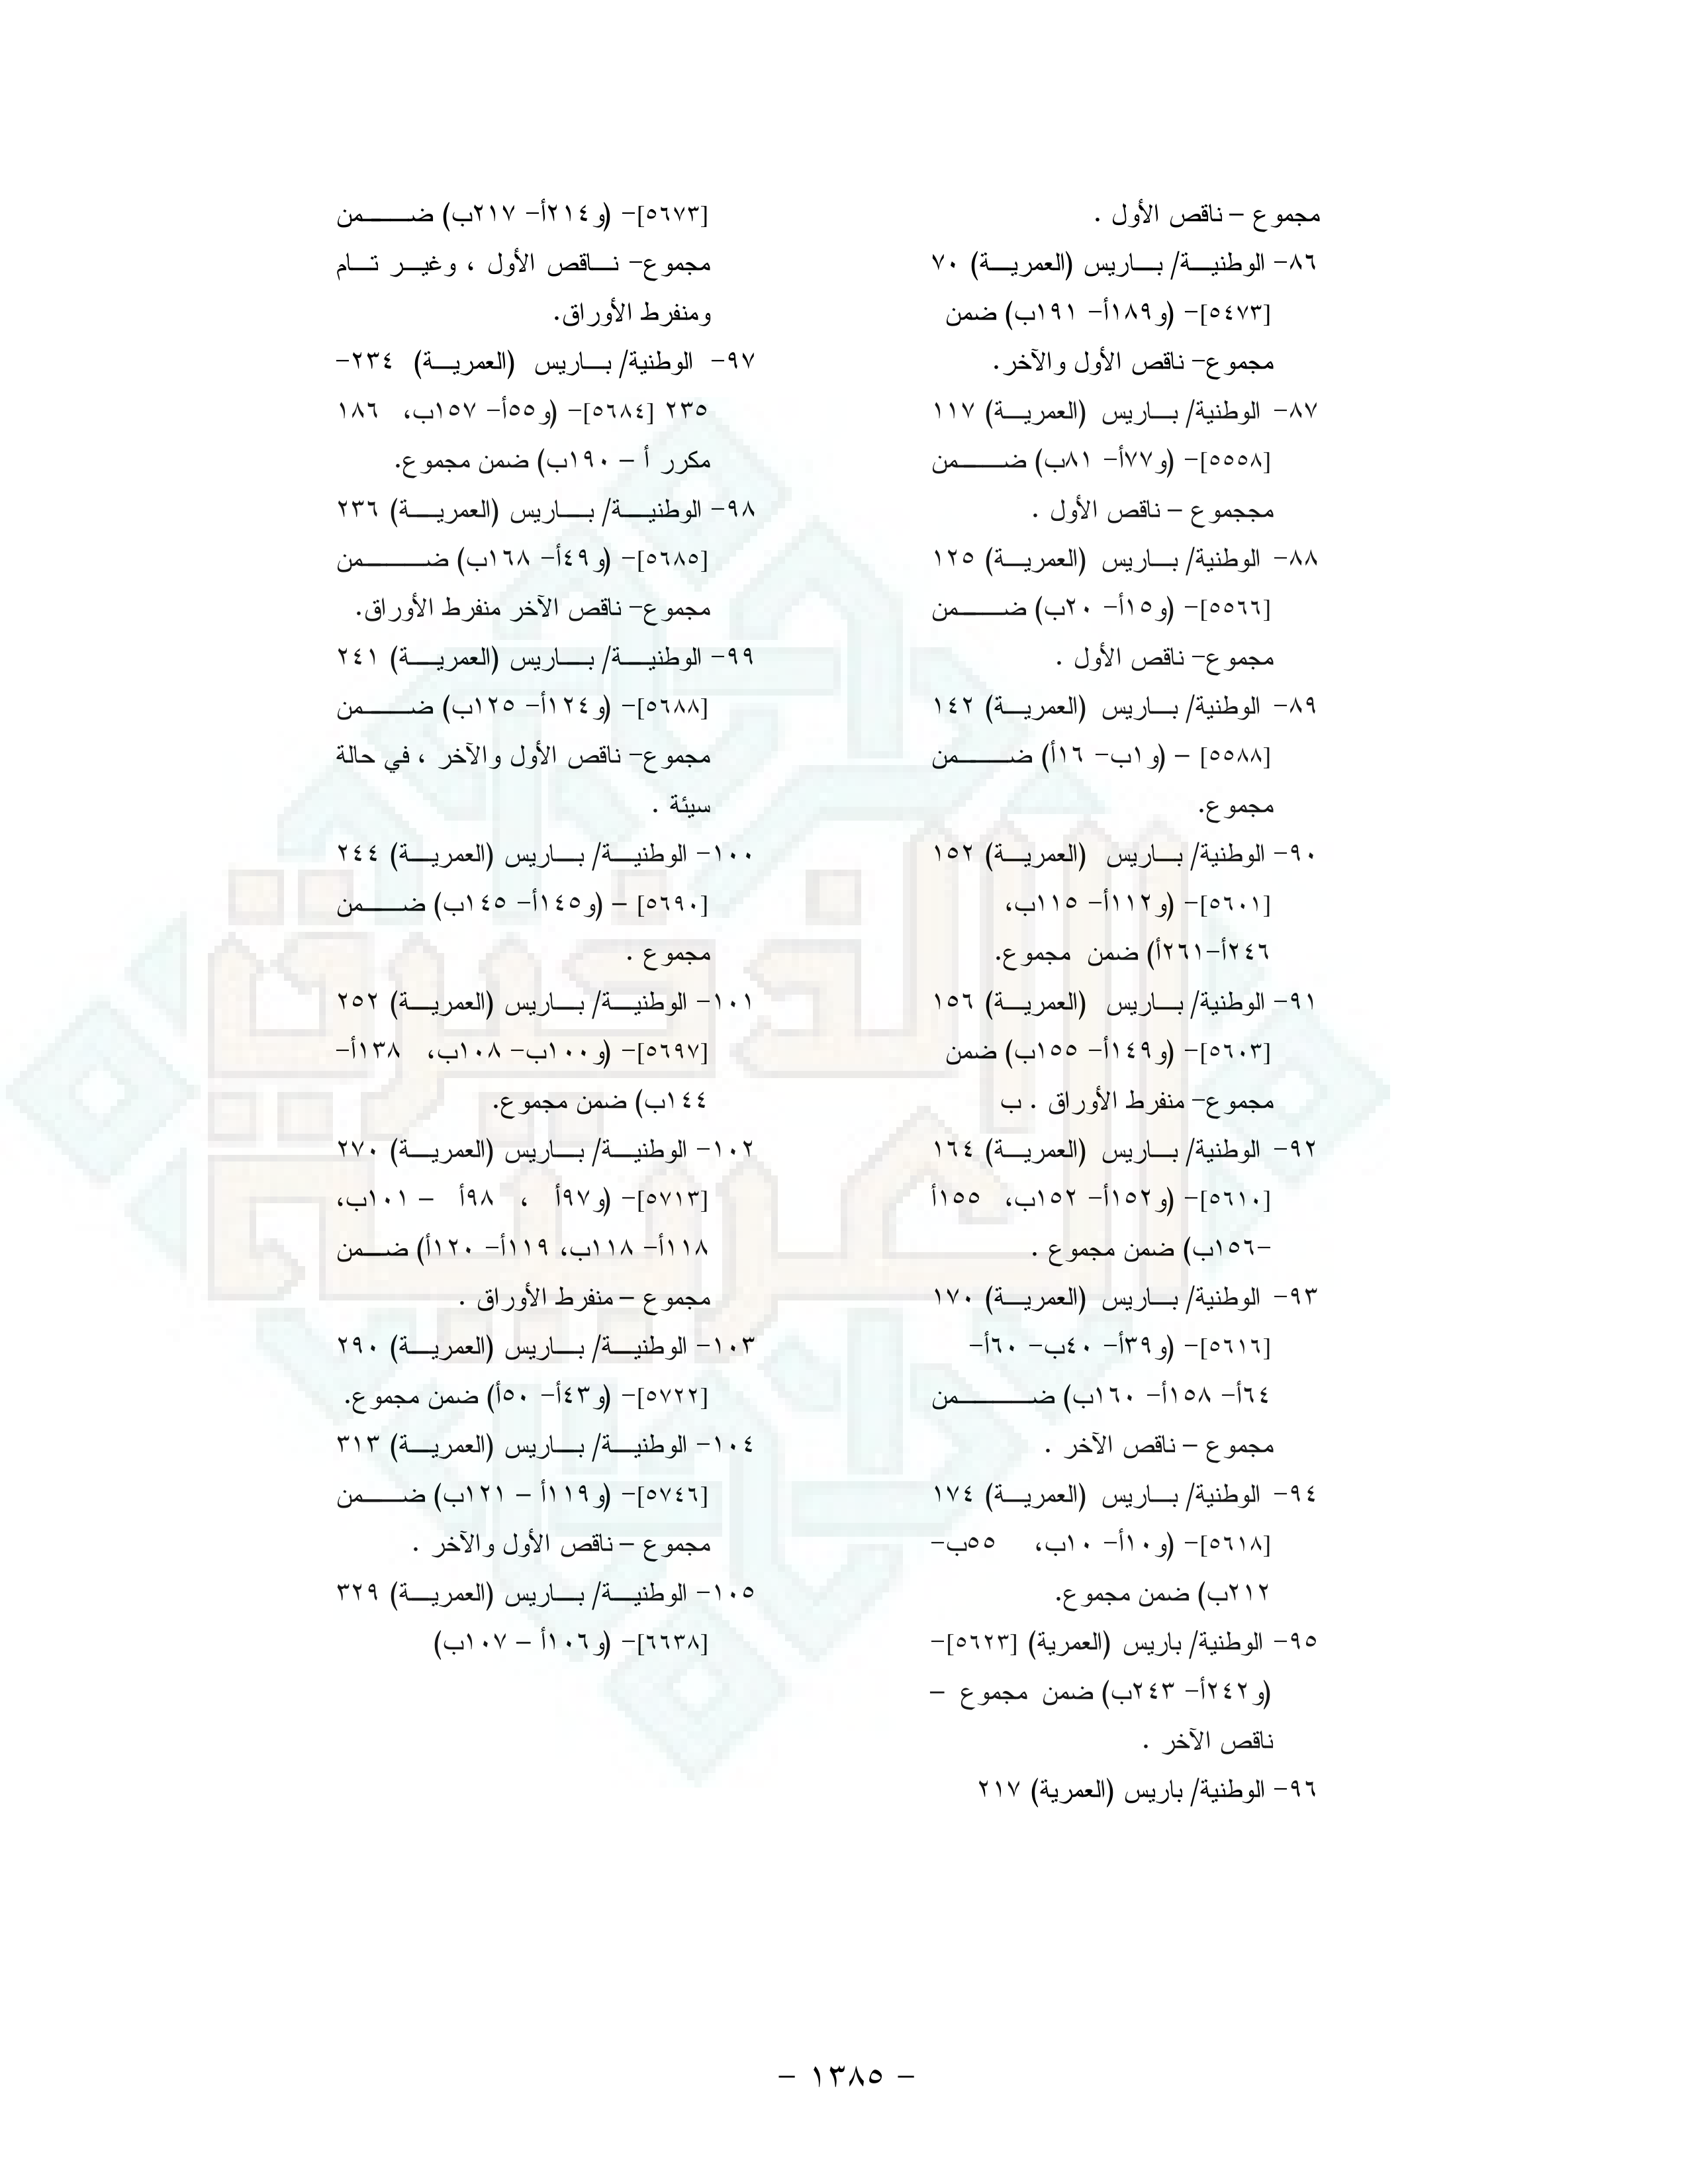 مجموع – ناقص الأول .
٨٦- الوطنية/ باريس (العمرية) ٧٠
[٥٤٧٣]- (و١٨٩أ- ١٩١ب) ضمن
مجموع- ناقص الأول والآخر.
٨٧- الوطنية/ باريس (العمرية) ١١٧
[٥٥٥٨]- (و٧٧أ- ٨١ب) ضمن
مججموع – ناقص الأول .
٨٨- الوطنية/ باريس (العمرية) ١٢٥
[٥٥٦٦]- (و١٥أ- ٢٠ب) ضمن
مجموع- ناقص الأول .
٨٩- الوطنية/ باريس (العمرية) ١٤٢
[٥٥٨٨] – (و١ب- ١٦أ) ضمن
مجموع.
٩٠- الوطنية/ باريس (العمرية) ١٥٢
[٥٦٠١]- (و١١٢أ- ١١٥ب،
٢٤٦أ-٢٦١أ) ضمن مجموع.
٩١- الوطنية/ باريس (العمرية) ١٥٦
[٥٦٠٣]- (و١٤٩أ- ١٥٥ب) ضمن
مجموع- منفرط الأوراق . ب
٩٢- الوطنية/ باريس (العمرية) ١٦٤
[٥٦١٠]- (و١٥٢أ- ١٥٢ب، ١٥٥أ
-١٥٦ب) ضمن مجموع .
٩٣- الوطنية/ باريس (العمرية) ١٧٠
[٥٦١٦]- (و٣٩أ- ٤٠ب- ٦٠أ-
٦٤أ- ١٥٨أ- ١٦٠ب) ضمن
مجموع – ناقص الآخر .
٩٤- الوطنية/ باريس (العمرية) ١٧٤
[٥٦١٨]- (و١٠أ- ١٠ب، ٥٥ب-
٢١٢ب) ضمن مجموع.
٩٥- الوطنية/ باريس (العمرية) [٥٦٢٣]-
(و٢٤٢أ- ٢٤٣ب) ضمن مجموع –
ناقص الآخر .
٩٦- الوطنية/ باريس (العمرية) ٢١٧
[٥٦٧٣]- (و٢١٤أ- ٢١٧ب) ضمن
مجموع- ناقص الأول ، وغير تام
ومنفرط الأوراق.
٩٧- الوطنية/ باريس (العمرية) ٢٣٤-
٢٣٥ [٥٦٨٤]- (و٥٥أ- ١٥٧ب، ١٨٦
مكرر أ – ١٩٠ب) ضمن مجموع.
٩٨- الوطنية/ باريس (العمرية) ٢٣٦
[٥٦٨٥]- (و٤٩أ- ١٦٨ب) ضمن
مجموع- ناقص الآخر منفرط الأوراق.
٩٩- الوطنية/ باريس (العمرية) ٢٤١
[٥٦٨٨]- (و١٢٤أ- ١٢٥ب) ضمن
مجموع- ناقص الأول والآخر ، في حالة
سيئة .
١٠٠- الوطنية/ باريس (العمرية) ٢٤٤
[٥٦٩٠] – (و١٤٥أ- ١٤٥ب) ضمن
مجموع .
١٠١- الوطنية/ باريس (العمرية) ٢٥٢
[٥٦٩٧]- (و١٠٠ب- ١٠٨ب، ١٣٨أ-
١٤٤ب) ضمن مجموع.
١٠٢- الوطنية/ باريس (العمرية) ٢٧٠
[٥٧١٣]- (و٩٧أ ، ٩٨أ – ١٠١ب،
١١٨أ- ١١٨ب، ١١٩أ- ١٢٠أ) ضمن
مجموع – منفرط الأوراق .
١٠٣- الوطنية/ باريس (العمرية) ٢٩٠
[٥٧٢٢]- (و٤٣أ- ٥٠أ) ضمن مجموع.
١٠٤- الوطنية/ باريس (العمرية) ٣١٣
[٥٧٤٦]- (و١١٩أ – ١٢١ب) ضمن
مجموع – ناقص الأول والآخر .
١٠٥- الوطنية/ باريس (العمرية) ٣٢٩
[٦٦٣٨]- (و١٠٦أ – ١٠٧ب)
- ١٣٨٥ -
الذخيرة
العربية